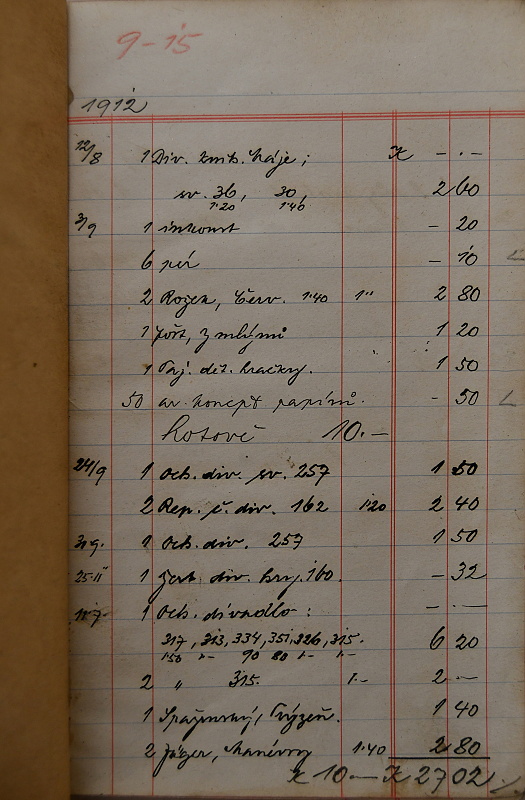 9-15
1912
12/8 1 Div. knih. Háje; K - . -
sv. 36, 30, 2 60
1·20 1·40
3/9 1 inkoust - 20
6 per - 10
2 Rozek, Červ. 1·40 1·- 2 80
1 Fořt, Z mlýnů 1 20
1 Taj. det. kračky. 1 50
50 ar. koncept papíru. - 50
hotově 10.-
24/9 1 Och. div. sv. 257 1 50
2 Rep. č. div. 162 1·20 2 40
1 Och. div. 257 1 50
25-11 1 div. hry. 160. - 32
1 Och. divadlo: - . -
317, 313, 334, 351, 326, 315. 6 20
1·50 1·- 90 80 1·- 1·-
2 " 315. 1·- 2 -
1 Špažinský, 1 40
2 Jäger, Manévry 1·40 2 80
K 10.- K 27 02